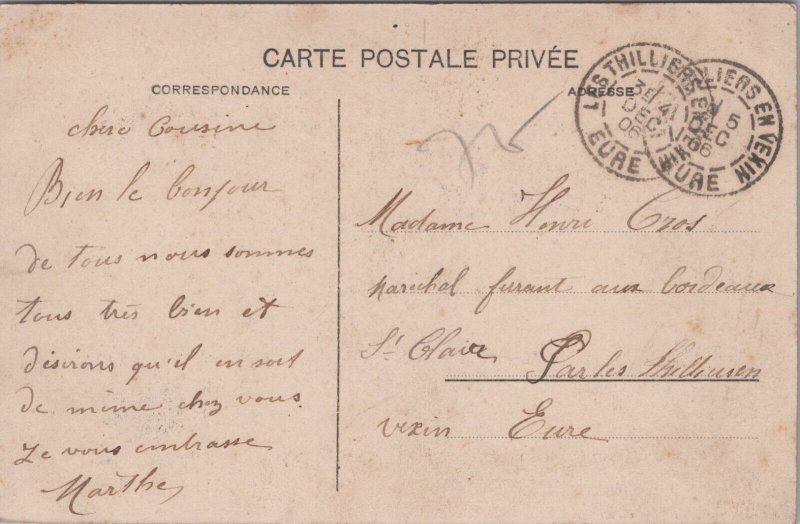 CARTE POSTALE PRIVÉE
CORRESPONDANCE
ADRESSE
LES THILLIERS EN VEXIN
4
DEC
06
EURE
LIERS EN VEXIN
5
DEC
06
EURE
chère Cousine
Bien le bonjour
de tous nous sommes
tous très bien et
désirons qu'il en soit
de même chez vous
Je vous embrasse
Marthe
Madame Henri Cros
marechal furant aux bordeaux
St Claire Par les Thilliers en
vexin Eure